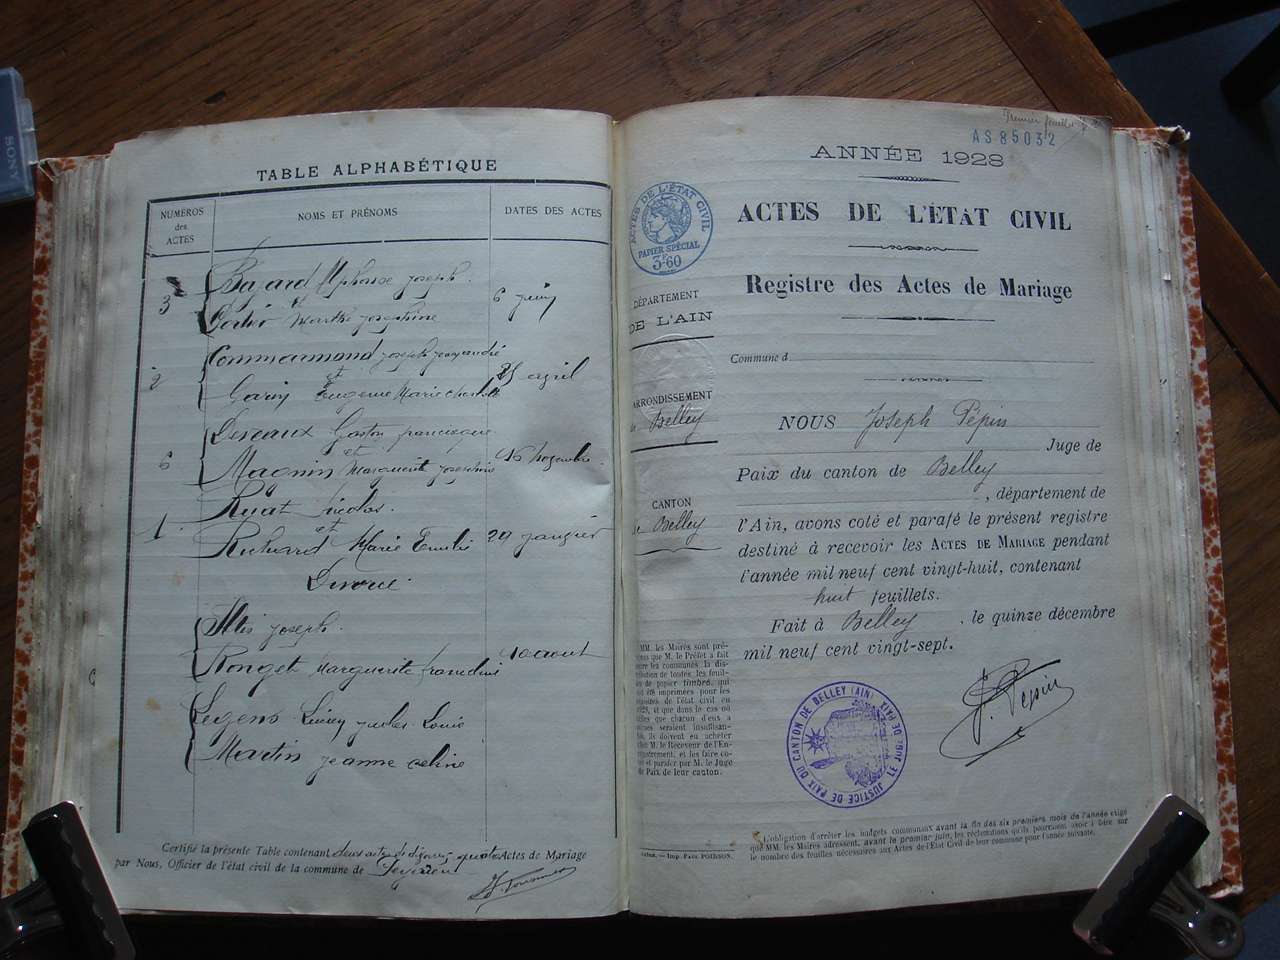 SONY
TABLE ALPHABÉTIQUE
NUMÉROS
des
ACTES
NOMS ET PRÉNOMS
DATES DES ACTES
3
Bazard Alphonse Joseph
et
Marthe Josephine
6 juin
2
Commarmond Joseph
et
Eugenie Marie
25 avril
6
Deveaux Gaston
et
Magnin Marguerite Josephine
16 Novembre
1
Ruat Nicolas
et
Richard Marie Emilie
29 janvier
Divorce
Joseph
Ronget Marguerite Francine
10 aout
Jules Louis
Martin Jeanne Céline
Certifié la présente Table contenant deux actes de divorce, quatre Actes de Mariage
par Nous, Officier de l'état civil de la commune de
Premier feuillet
AS 85032
ANNÉE 1928
ACTES DE L'ÉTAT CIVIL
PAPIER SPÉCIAL
3F60
ACTES DE L'ÉTAT CIVIL
Registre des Actes de Mariage
DÉPARTEMENT
DE L'AIN
Commune d
ARRONDISSEMENT
de Belley
NOUS Joseph Pépin
Juge de
Paix du canton de Belley
, département de
CANTON
de Belley
l'Ain, avons coté et parafé le présent registre
destiné à recevoir les ACTES DE MARIAGE pendant
l'année mil neuf cent vingt-huit, contenant
huit feuillets.
Fait à Belley, le quinze décembre
mil neuf cent vingt-sept.
MM. les Maires sont pré-
venus que M. le Préfet a fait
entre les communes la dis-
tribution de toutes les feuil-
les de papier timbré, qui
ont été imprimées pour les
registres de l'état civil en
1928, et que dans le cas où
celles que chacun d'eux a
reçues seraient insuffisan-
tes, ils doivent en acheter
chez M. le Receveur de l'En-
registrement, et les faire co-
ter et parafer par M. le Juge
de Paix de leur canton.
JUSTICE DE PAIX DU CANTON DE BELLEY (AIN)
LE JUGE DE PAIX
J. Pépin
L'obligation d'arrêter les budgets communaux avant la fin des six premiers mois de l'année exige
que MM. les Maires adressent, avant le premier juin, les réclamations qu'ils pourraient avoir à faire sur
le nombre des feuilles nécessaires aux Actes de l'État Civil de leur commune pour l'année suivante.
Imp. Paul POISSON.